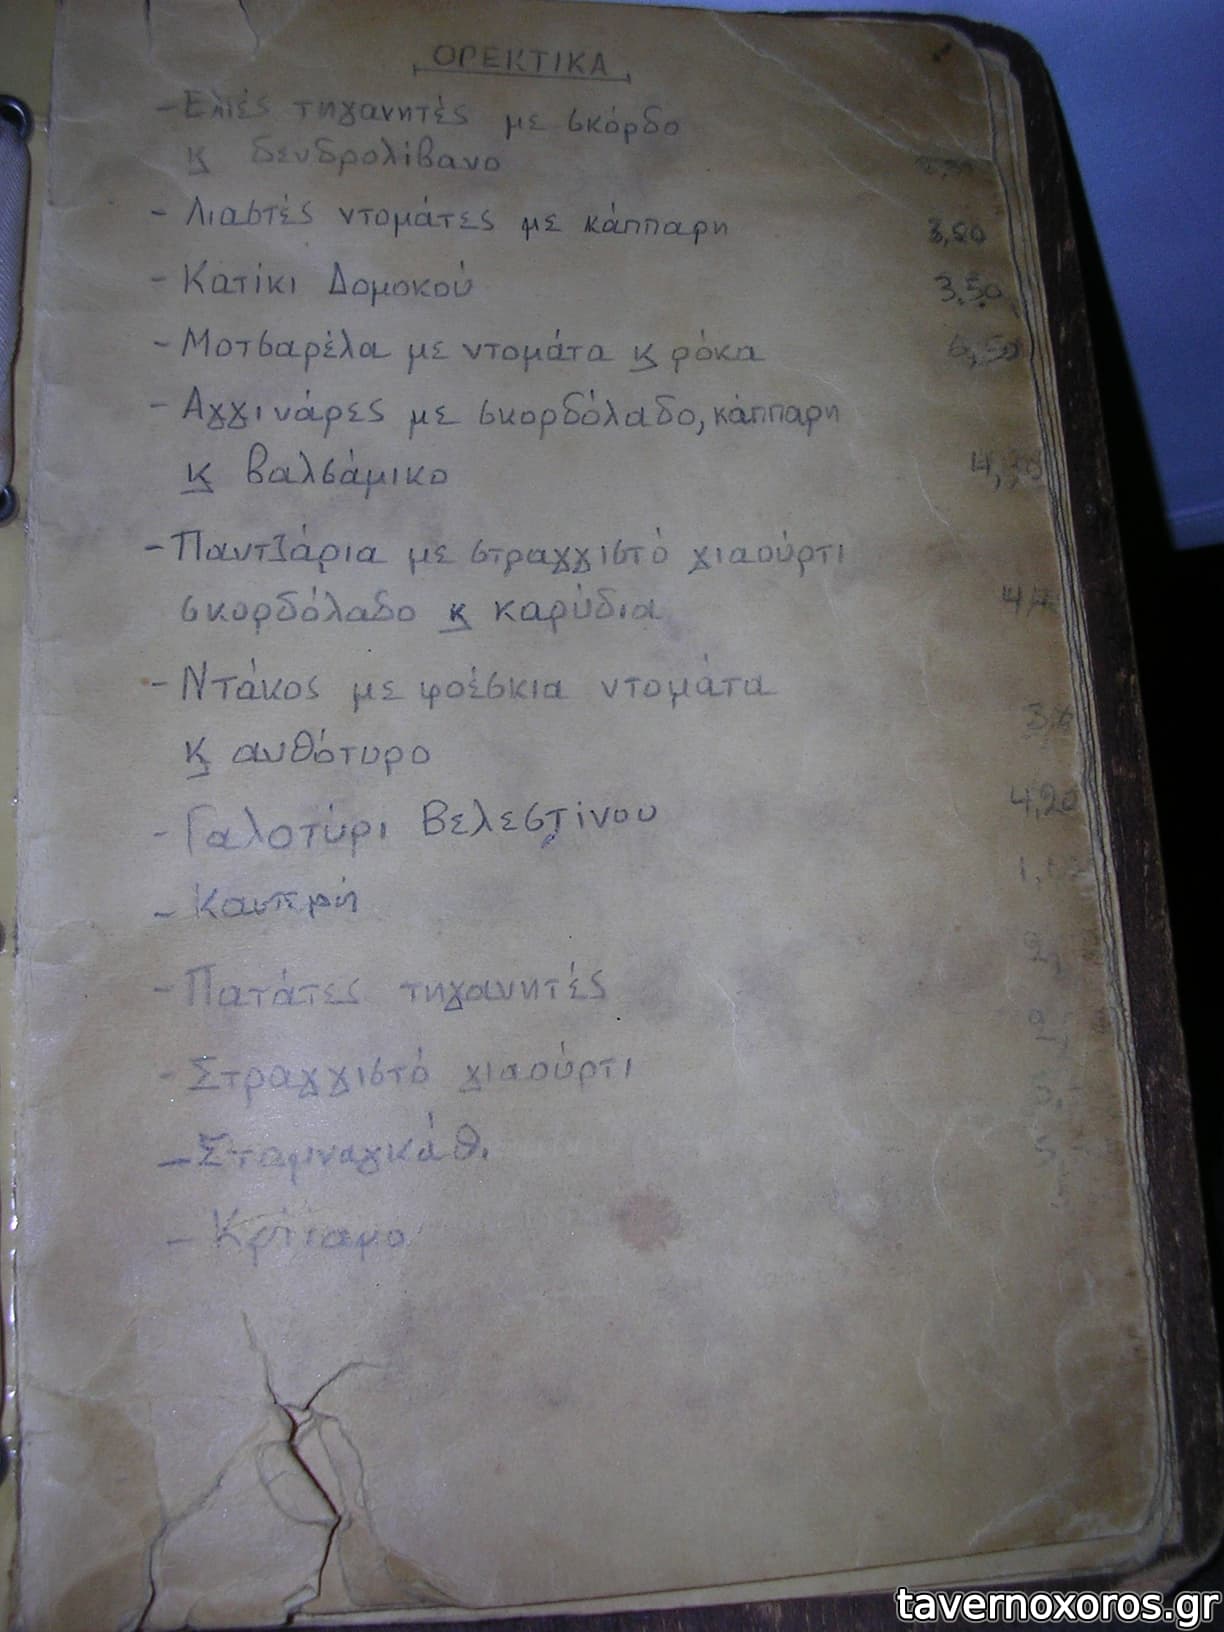 ΟΡΕΚΤΙΚΑ
- Ελιές τηγανητές με σκόρδο
κ δενδρολίβανο
- Λιαστές ντομάτες με κάππαρη 3,80
- Κατίκι Δομοκού 3,50
- Μοτσαρέλα με ντομάτα κ ρόκα 6,50
- Αγγινάρες με σκορδόλαδο, κάππαρη
κ βαλσάμικο
- Παντζάρια με στραγγιστό γιαούρτι
σκορδόλαδο κ καρύδια
- Ντάκος με φρέσκια ντομάτα
κ ανθότυρο
- Γαλοτύρι Βελεστίνου 4,20
- Καυτερή
- Πατάτες τηγανητές
- Στραγγιστό γιαούρτι
- Σταμναγκάθι
- Κρίταμο
tavernoxoros.gr